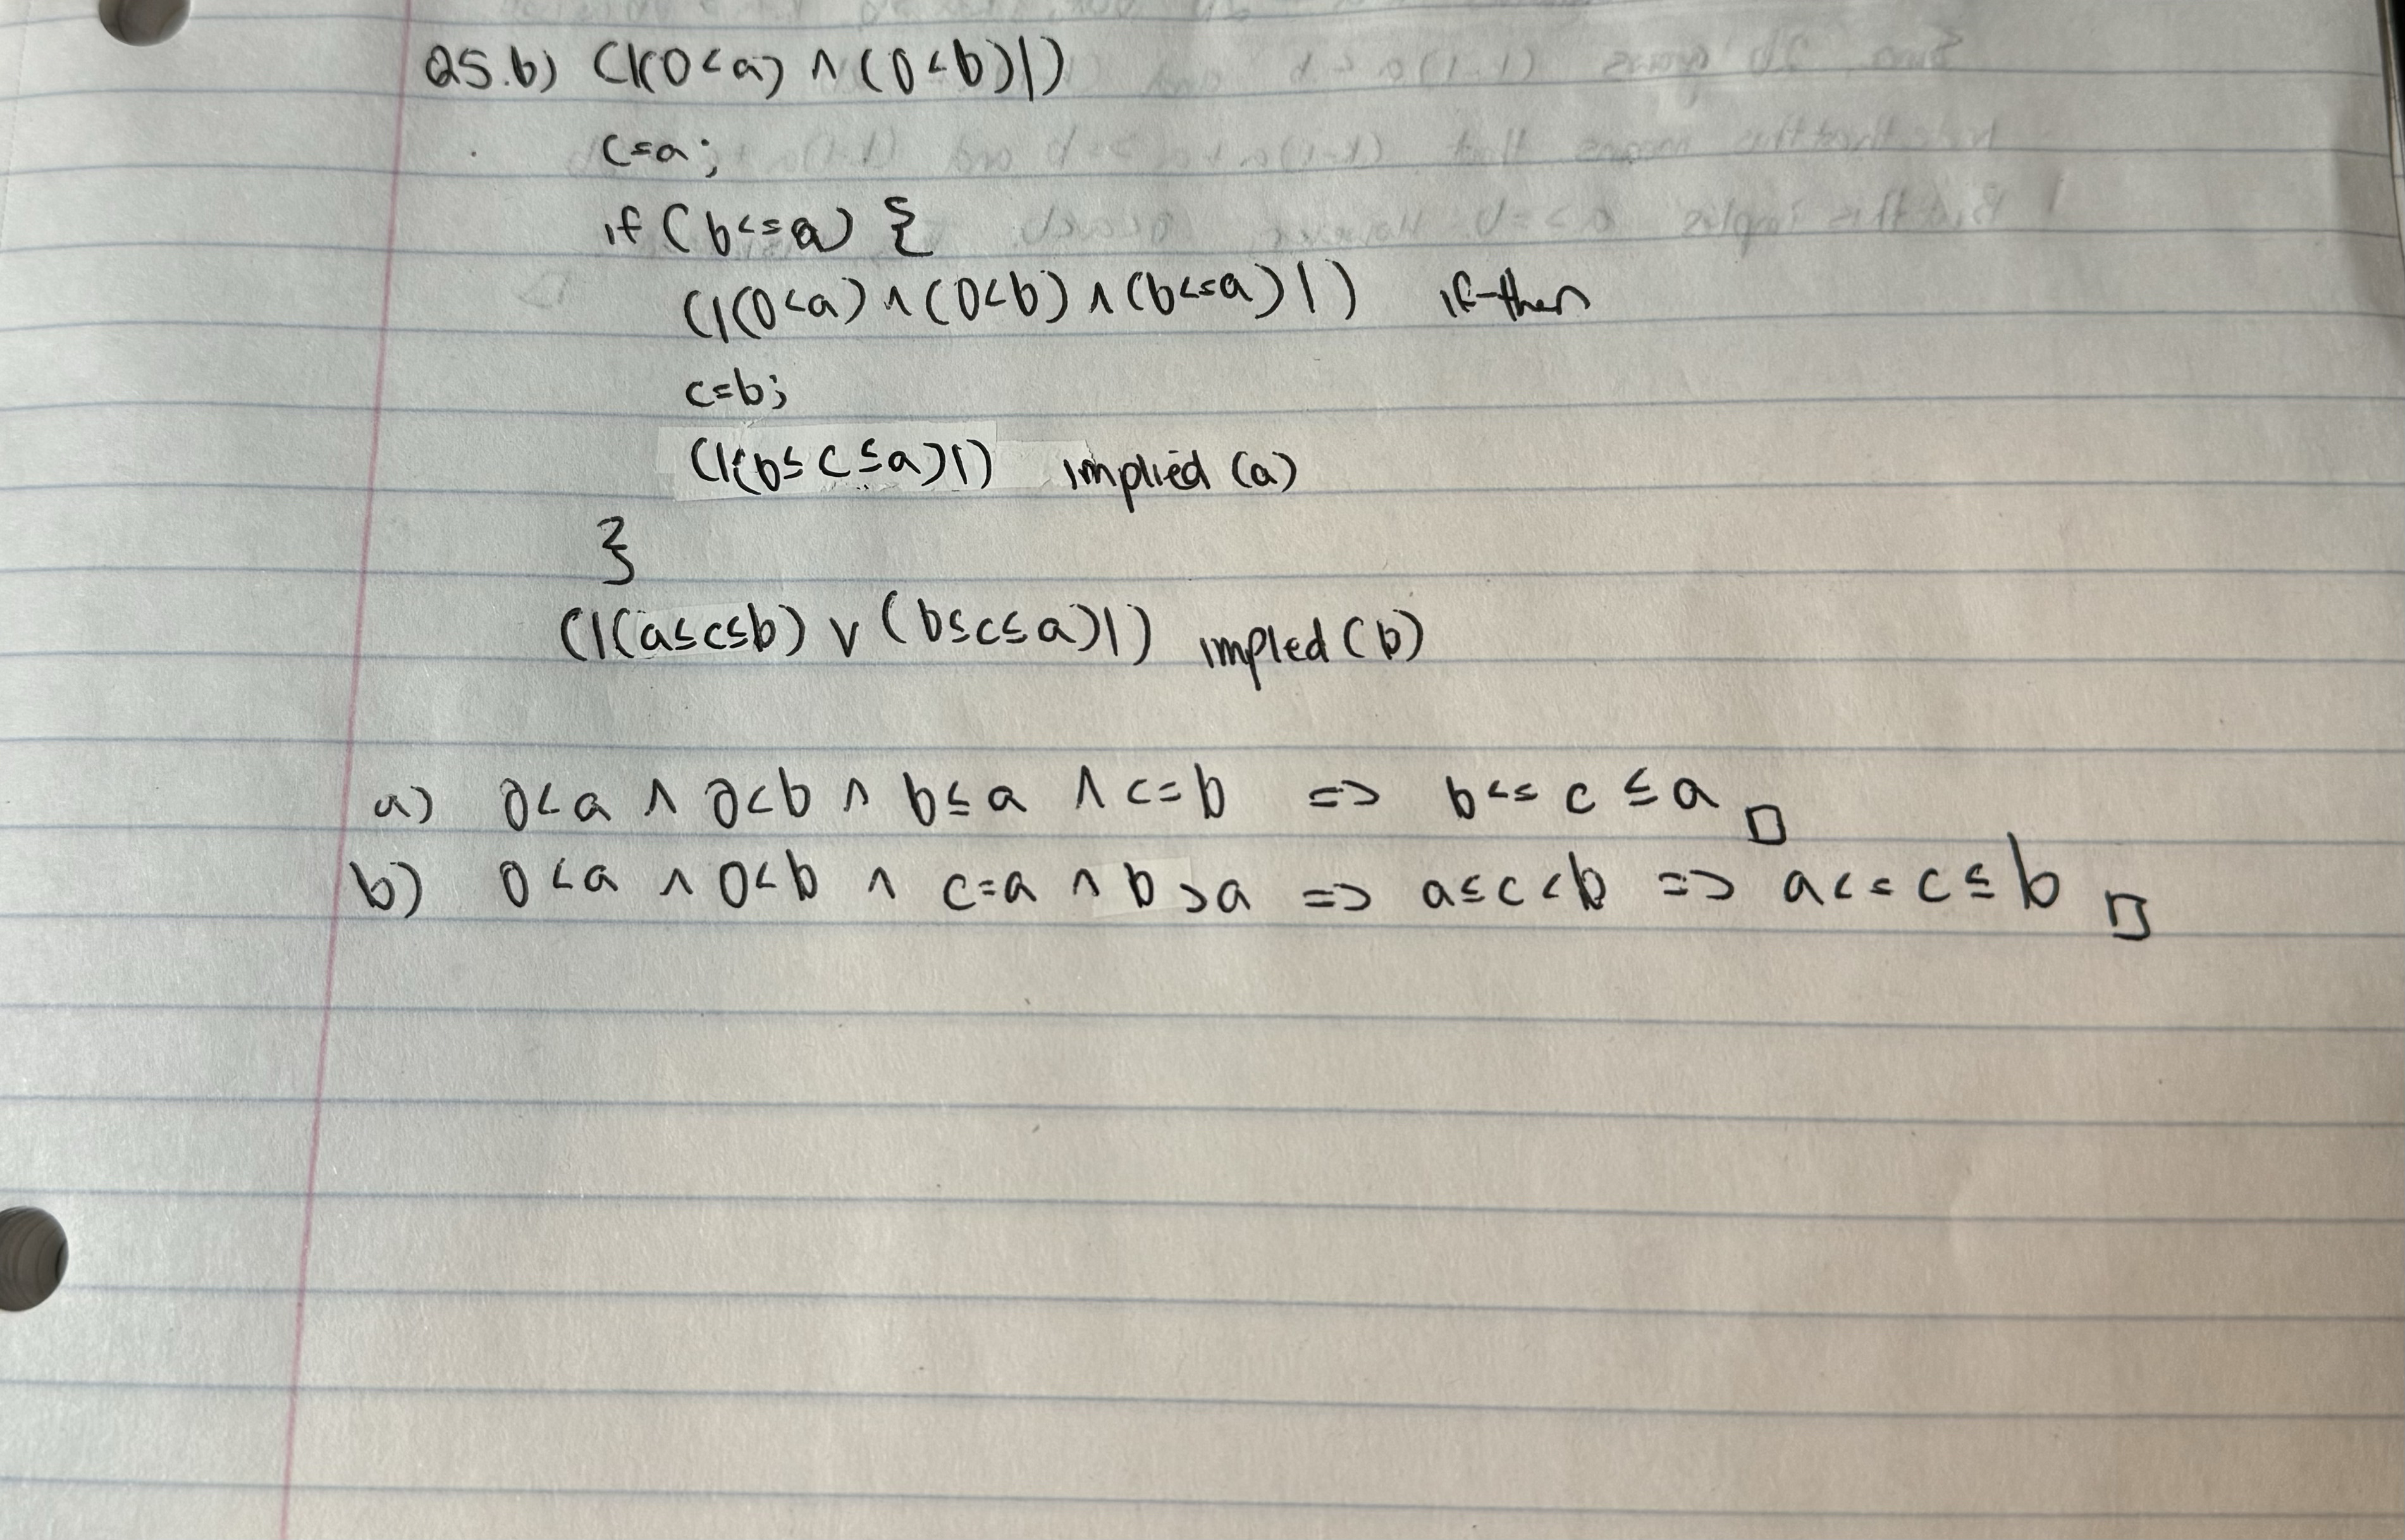 Q5.b) (|(0<a) ∧ (0<b)|)
c=a;
if (b<=a) {
(|(0<a) ∧ (0<b) ∧ (b<=a)|) if-then
c=b;
(|(b≤c≤a)|) implied (a)
}
(|(a≤c≤b) ∨ (b≤c≤a)|) impled (b)
a) 0<a ∧ 0<b ∧ b≤a ∧ c=b => b<=c≤a □
b) 0<a ∧ 0<b ∧ c=a ∧ b>a => a≤c<b => a<=c≤b □